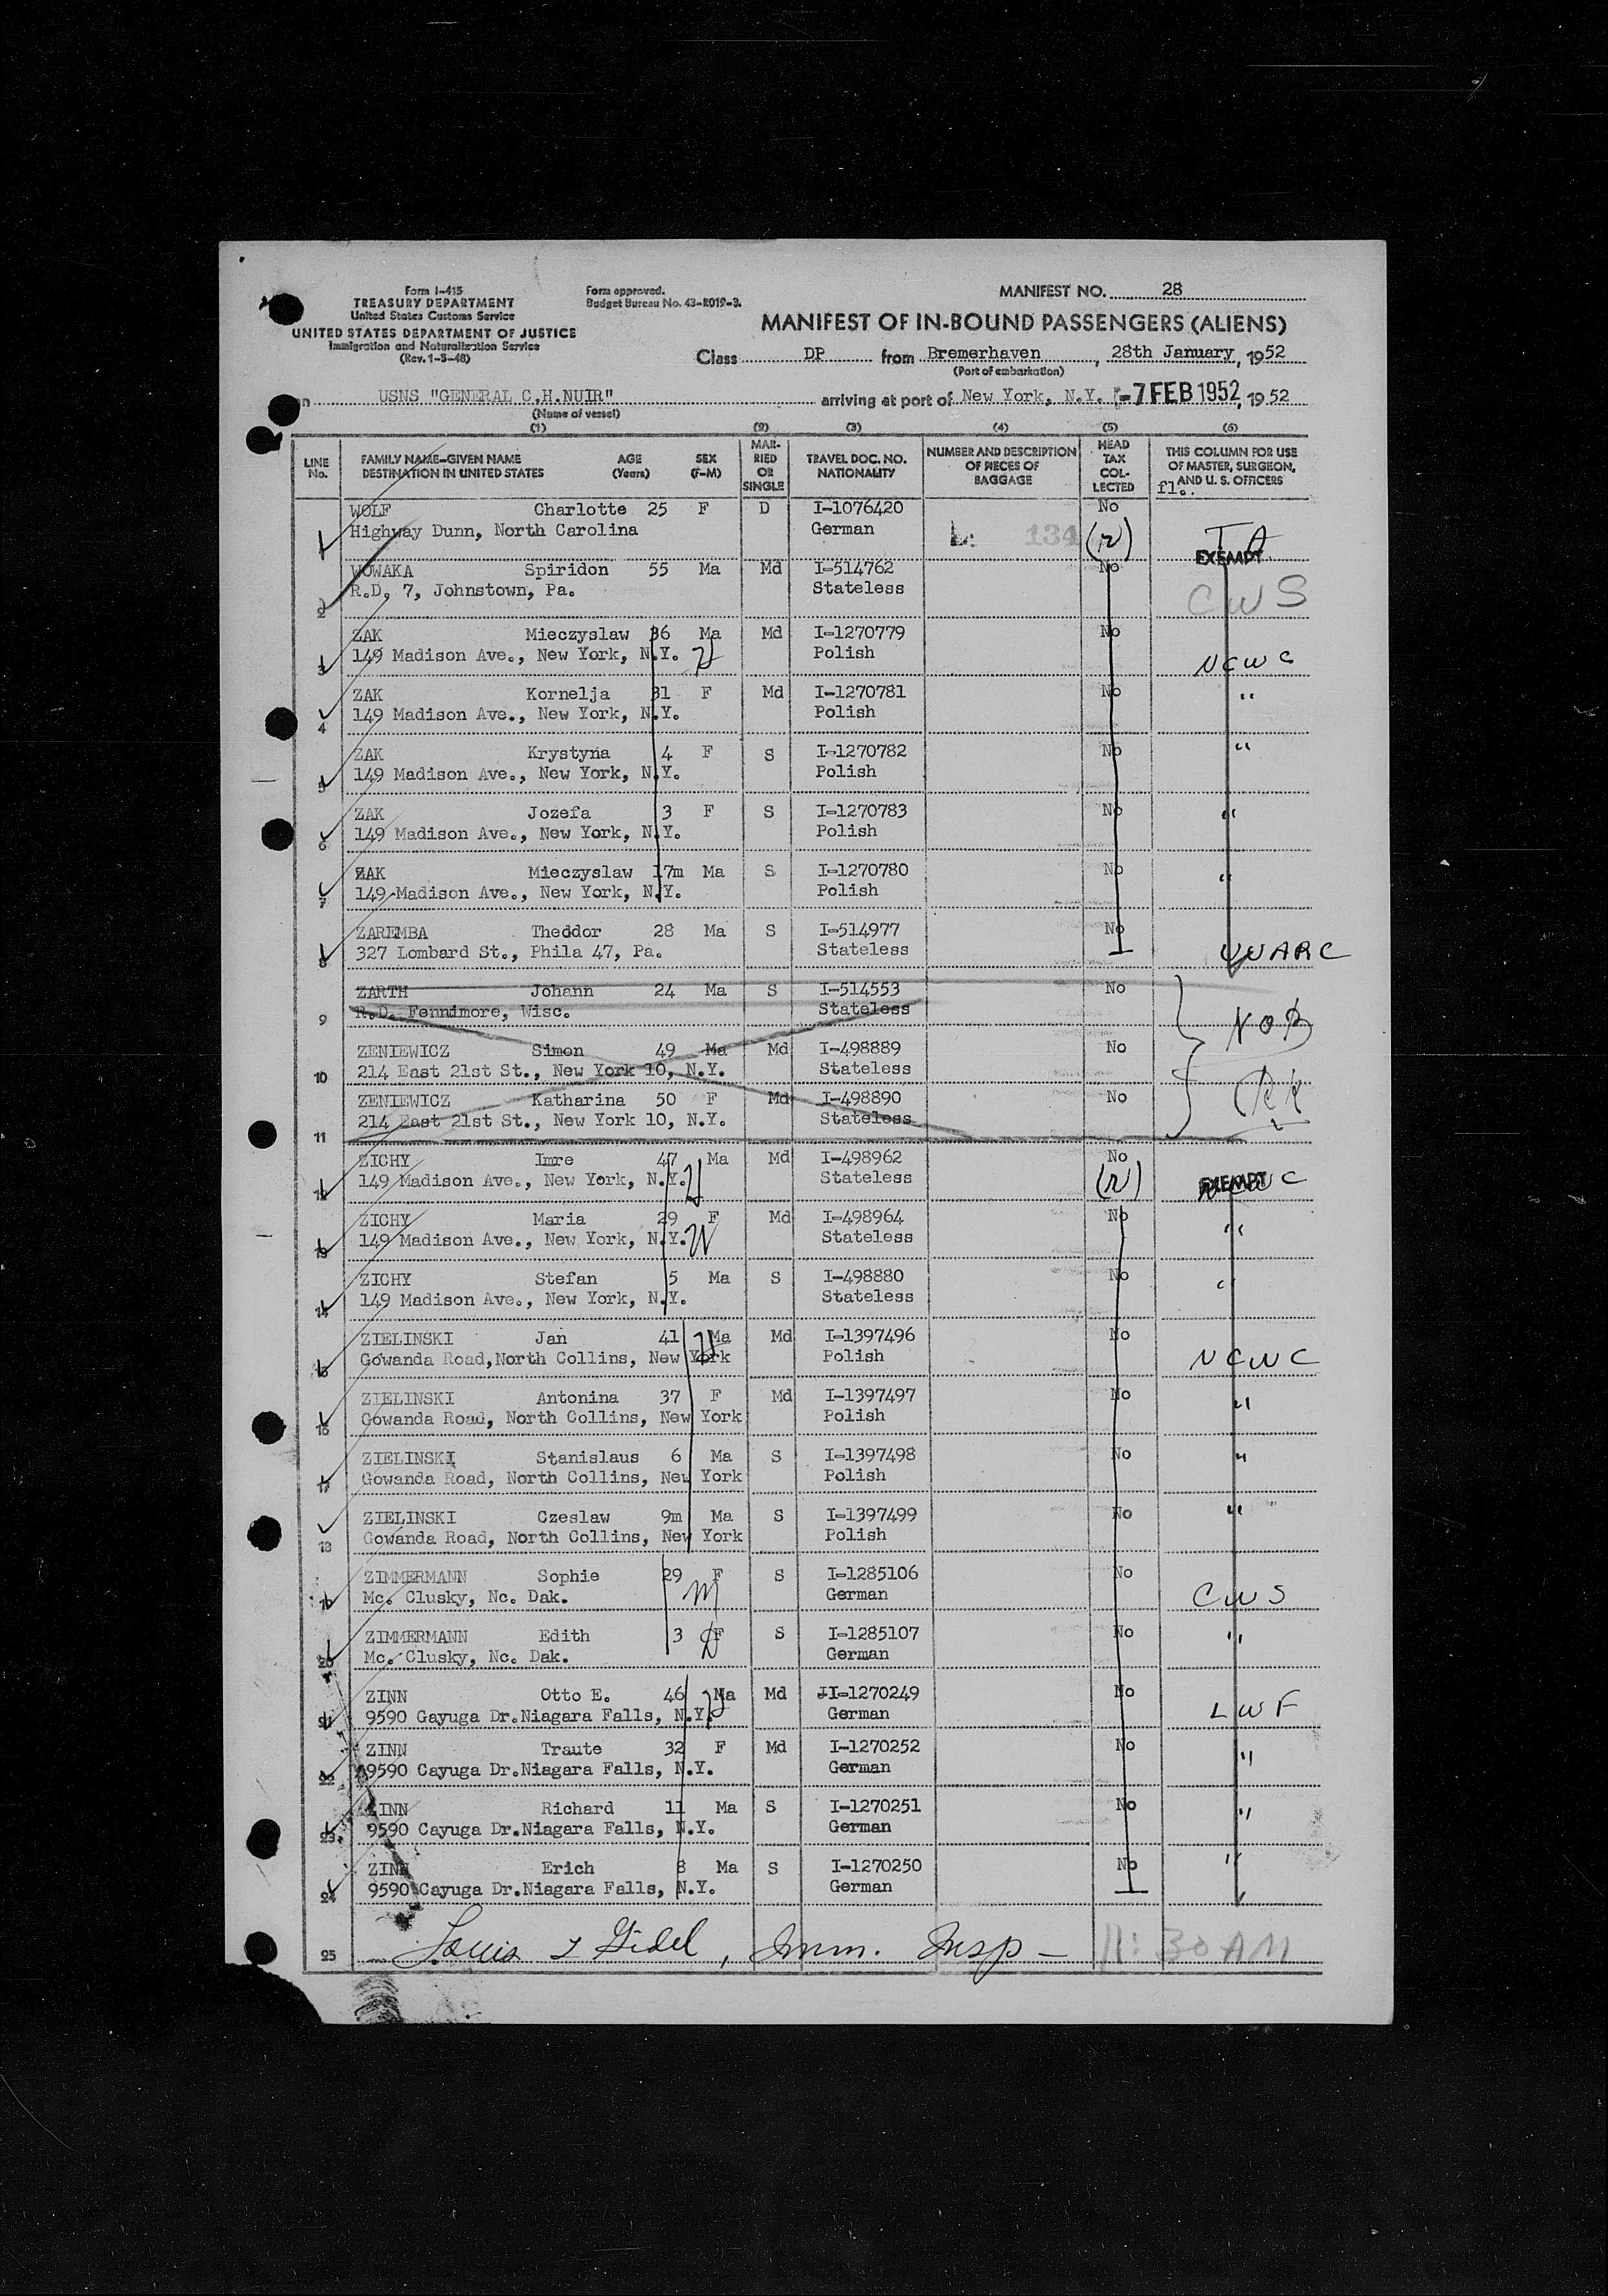 Form I-415
TREASURY DEPARTMENT
United States Customs Service
UNITED STATES DEPARTMENT OF JUSTICE
Immigration and Naturalization Service
(Rev. 1-5-48)
Form approved.
Budget Bureau No. 43-R019-3.
MANIFEST NO. 28
MANIFEST OF IN-BOUND PASSENGERS (ALIENS)
Class DP from Bremerhaven, 28th January, 1952
(Port of embarkation)
USNS "GENERAL C.H.NUIR" arriving at port of New York, N.Y. -7 FEB 1952, 1952
(Name of vessel)
(1) (2) (3) (4) (5) (6)
LINE No. FAMILY NAME-GIVEN NAME DESTINATION IN UNITED STATES AGE (Years) SEX (F-M) MARRIED OR SINGLE TRAVEL DOC. NO. NATIONALITY NUMBER AND DESCRIPTION OF PIECES OF BAGGAGE HEAD TAX COLLECTED THIS COLUMN FOR USE OF MASTER, SURGEON, AND U. S. OFFICERS
fl..
WOLF Charlotte 25 F D I-1076420 No
1 Highway Dunn, North Carolina German 134 (r) EXEMPT
WOWAKA Spiridon 55 Ma Md I-514762 No
2 R.D. 7, Johnstown, Pa. Stateless CWS
ZAK Mieczyslaw 36 Ma Md I-1270779 No
3 149 Madison Ave., New York, N.Y. Polish NCWC
ZAK Kornelja 31 F Md I-1270781 No "
4 149 Madison Ave., New York, N.Y. Polish
ZAK Krystyna 4 F S I-1270782 No "
5 149 Madison Ave., New York, N.Y. Polish
ZAK Jozefa 3 F S I-1270783 No "
6 149 Madison Ave., New York, N.Y. Polish
ZAK Mieczyslaw 17m Ma S I-1270780 No "
7 149 Madison Ave., New York, N.Y. Polish
ZAREMBA Theddor 28 Ma S I-514977 No
8 327 Lombard St., Phila 47, Pa. Stateless
ZARTH Johann 24 Ma S I-514553 No
9 R.D. Fennimore, Wisc. Stateless NOB
ZENIEWICZ Simon 49 Ma Md I-498889 No
10 214 East 21st St., New York 10, N.Y. Stateless
ZENIEWICZ Katharina 50 F Md I-498890 No
11 214 East 21st St., New York 10, N.Y. Stateless
ZICHY Imre 47 Ma Md I-498962 No
12 149 Madison Ave., New York, N.Y. Stateless (r) EXEMPT NCWC
ZICHY Maria 29 F Md I-498964 No "
13 149 Madison Ave., New York, N.Y. Stateless
ZICHY Stefan 5 Ma S I-498880 No "
14 149 Madison Ave., New York, N.Y. Stateless
ZIELINSKI Jan 41 Ma Md I-1397496 No
15 Gowanda Road,North Collins, New York Polish NCWC
ZIELINSKI Antonina 37 F Md I-1397497 No "
16 Gowanda Road, North Collins, New York Polish
ZIELINSKI Stanislaus 6 Ma S I-1397498 No "
17 Gowanda Road, North Collins, New York Polish
ZIELINSKI Czeslaw 9m Ma S I-1397499 No "
18 Gowanda Road, North Collins, New York Polish
ZIMMERMANN Sophie 29 F S I-1285106 No
19 Mc. Clusky, Nc. Dak. German CWS
ZIMMERMANN Edith 3 F S I-1285107 No "
20 Mc. Clusky, Nc. Dak. German
ZINN Otto E. 46 Ma Md I-1270249 No LWF
21 9590 Gayuga Dr.Niagara Falls, N.Y. German
ZINN Traute 32 F Md I-1270252 No "
22 9590 Cayuga Dr.Niagara Falls, N.Y. German
ZINN Richard 11 Ma S I-1270251 No "
23 9590 Cayuga Dr.Niagara Falls, N.Y. German
ZINN Erich 8 Ma S I-1270250 No "
24 9590 Cayuga Dr.Niagara Falls, N.Y. German
25 Louis I Gidel, Imm. Insp - 11:30 AM